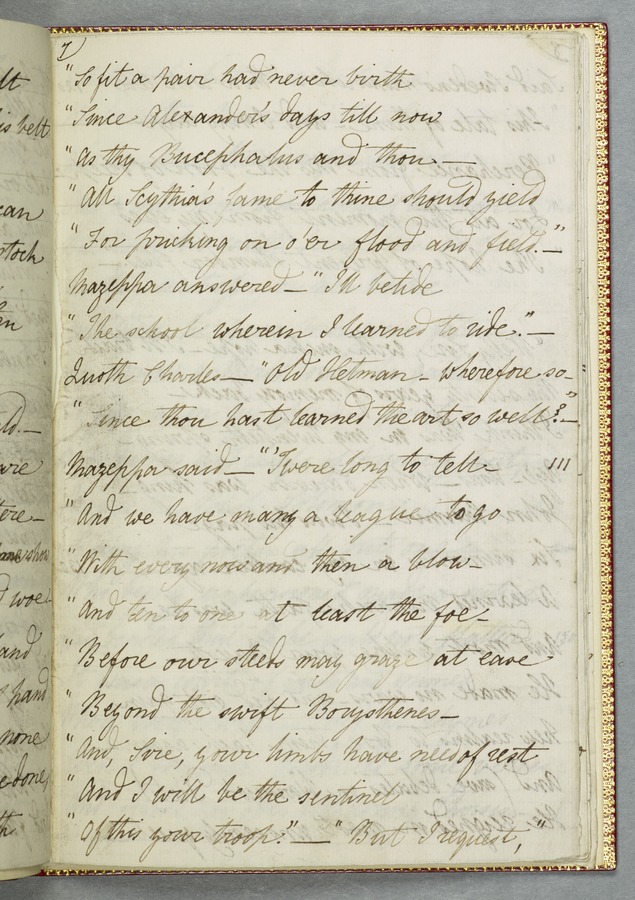 7)
"So fit a pair had never birth
"Since Alexander's days till now
"As thy Bucephalus and thou —
"All Scythia's fame to thine should yield
"For pricking on o'er flood and field. —"
Mazeppa answered — "Ill betide
"The school wherein I learned to ride." —
Quoth Charles — "Old Hetman — wherefore so —
"Since thou hast learned the art so well?" —
Mazeppa said — "'Twere long to tell — 111
"And we have many a league to go
"With every now and then a blow —
"And ten to one at least the foe —
"Before our steeds may graze at ease
"Beyond the swift Borysthenes —
"And, Sire, your limbs have need of rest
"And I will be the sentinel
"Of this your troop." — "But I request,"
lt
is belt
can
rtock
ld. —
are
ere —
d woe
and
hand
none
e done
th